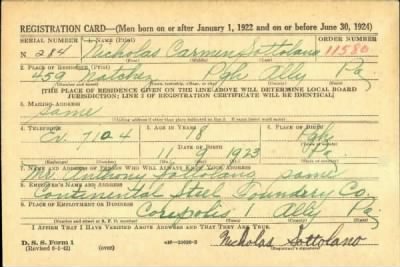 REGISTRATION CARD—(Men born on or after January 1, 1922 and on or before June 30, 1924)
SERIAL NUMBER 1. NAME (Print) ORDER NUMBER
N 284 Nicholas Carmen Sottolano 11580
(First) (Middle) (Last)
2. PLACE OF RESIDENCE (Print)
459 Pgh Ally Pa
(Number and street) (Town, township, village, or city) (County) (State)
[THE PLACE OF RESIDENCE GIVEN ON THE LINE ABOVE WILL DETERMINE LOCAL BOARD
JURISDICTION; LINE 2 OF REGISTRATION CERTIFICATE WILL BE IDENTICAL]
3. MAILING ADDRESS
Same
(Mailing address if other than place indicated on line 2. If same insert word same)
4. TELEPHONE 5. AGE IN YEARS 6. PLACE OF BIRTH
7104 18 Pgh
DATE OF BIRTH
11 9 1923 Pa
(Mo.) (Day) (Yr.) (State or country)
7. NAME AND ADDRESS OF PERSON WHO WILL ALWAYS KNOW YOUR ADDRESS
Anthony Sottolano same
8. EMPLOYER'S NAME AND ADDRESS
Continental Steel Foundery Co.
9. PLACE OF EMPLOYMENT OR BUSINESS
Corapolis Ally Pa
(Number and street or R. F. D. number) (Town) (County) (State)
I AFFIRM THAT I HAVE VERIFIED ABOVE ANSWERS AND THAT THEY ARE TRUE.
D. S. S. Form 1
(Revised 6-1-42) (over) Nicholas Sottolano